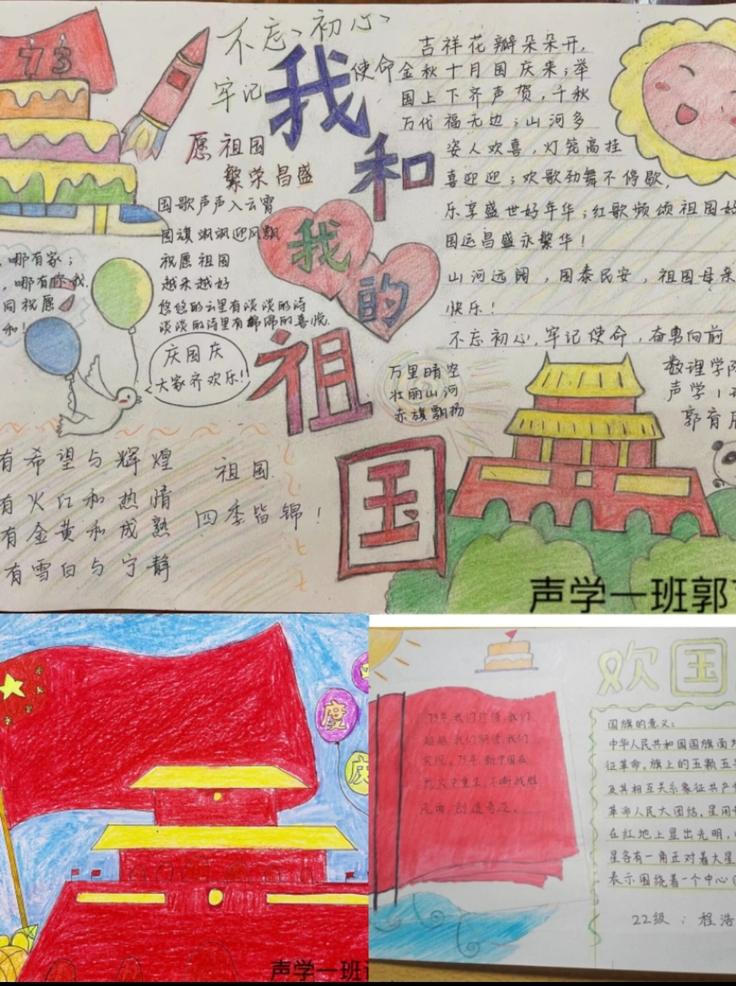 73
不忘、初心、
牢记
使命
我
和
我
的
祖
国
愿祖国
繁荣昌盛
国歌声声入云霄
国旗飘飘迎风飘
祝愿祖国
越来越好
悠悠的云里有淡淡的诗
淡淡的诗里有绵绵的喜悦.
,哪有家;
,哪有
同祝愿
和!
庆国庆
大家齐欢乐!!
有希望与辉煌
有火红和热情
有金黄和成熟
有雪白与宁静
祖国
四季皆锦!
吉祥花瓣朵朵开,
金秋十月国庆来;举
国上下齐声贺,千秋
万代福无边;山河多
姿人欢喜,灯笼高挂
喜迎迎;欢歌劲舞不停歇,
乐享盛世好年华;红歌频颂祖国好
国运昌盛永繁华!
山河远阔,国泰民安,祖国母亲
快乐!
不忘初心,牢记使命,奋勇向前
万里晴空
壮丽山河
赤旗飘扬
数理学院
声学1班
郭育
声学一班郭
度
庆
声学一班
欢国
73年,我们拦慎,我们
超越,我们
实现。73年,新中国在
火中重生,不断战胜
风雨,创造奇迹。
国旗的意义:
中华人民共和国国旗面为
征革命。旗上的五颗五
及其相互关系象征共产
革命人民大团结。星用
在红地上显出光明,
星各有一角正对着大星
表示围绕着一个中心
22级:程浩